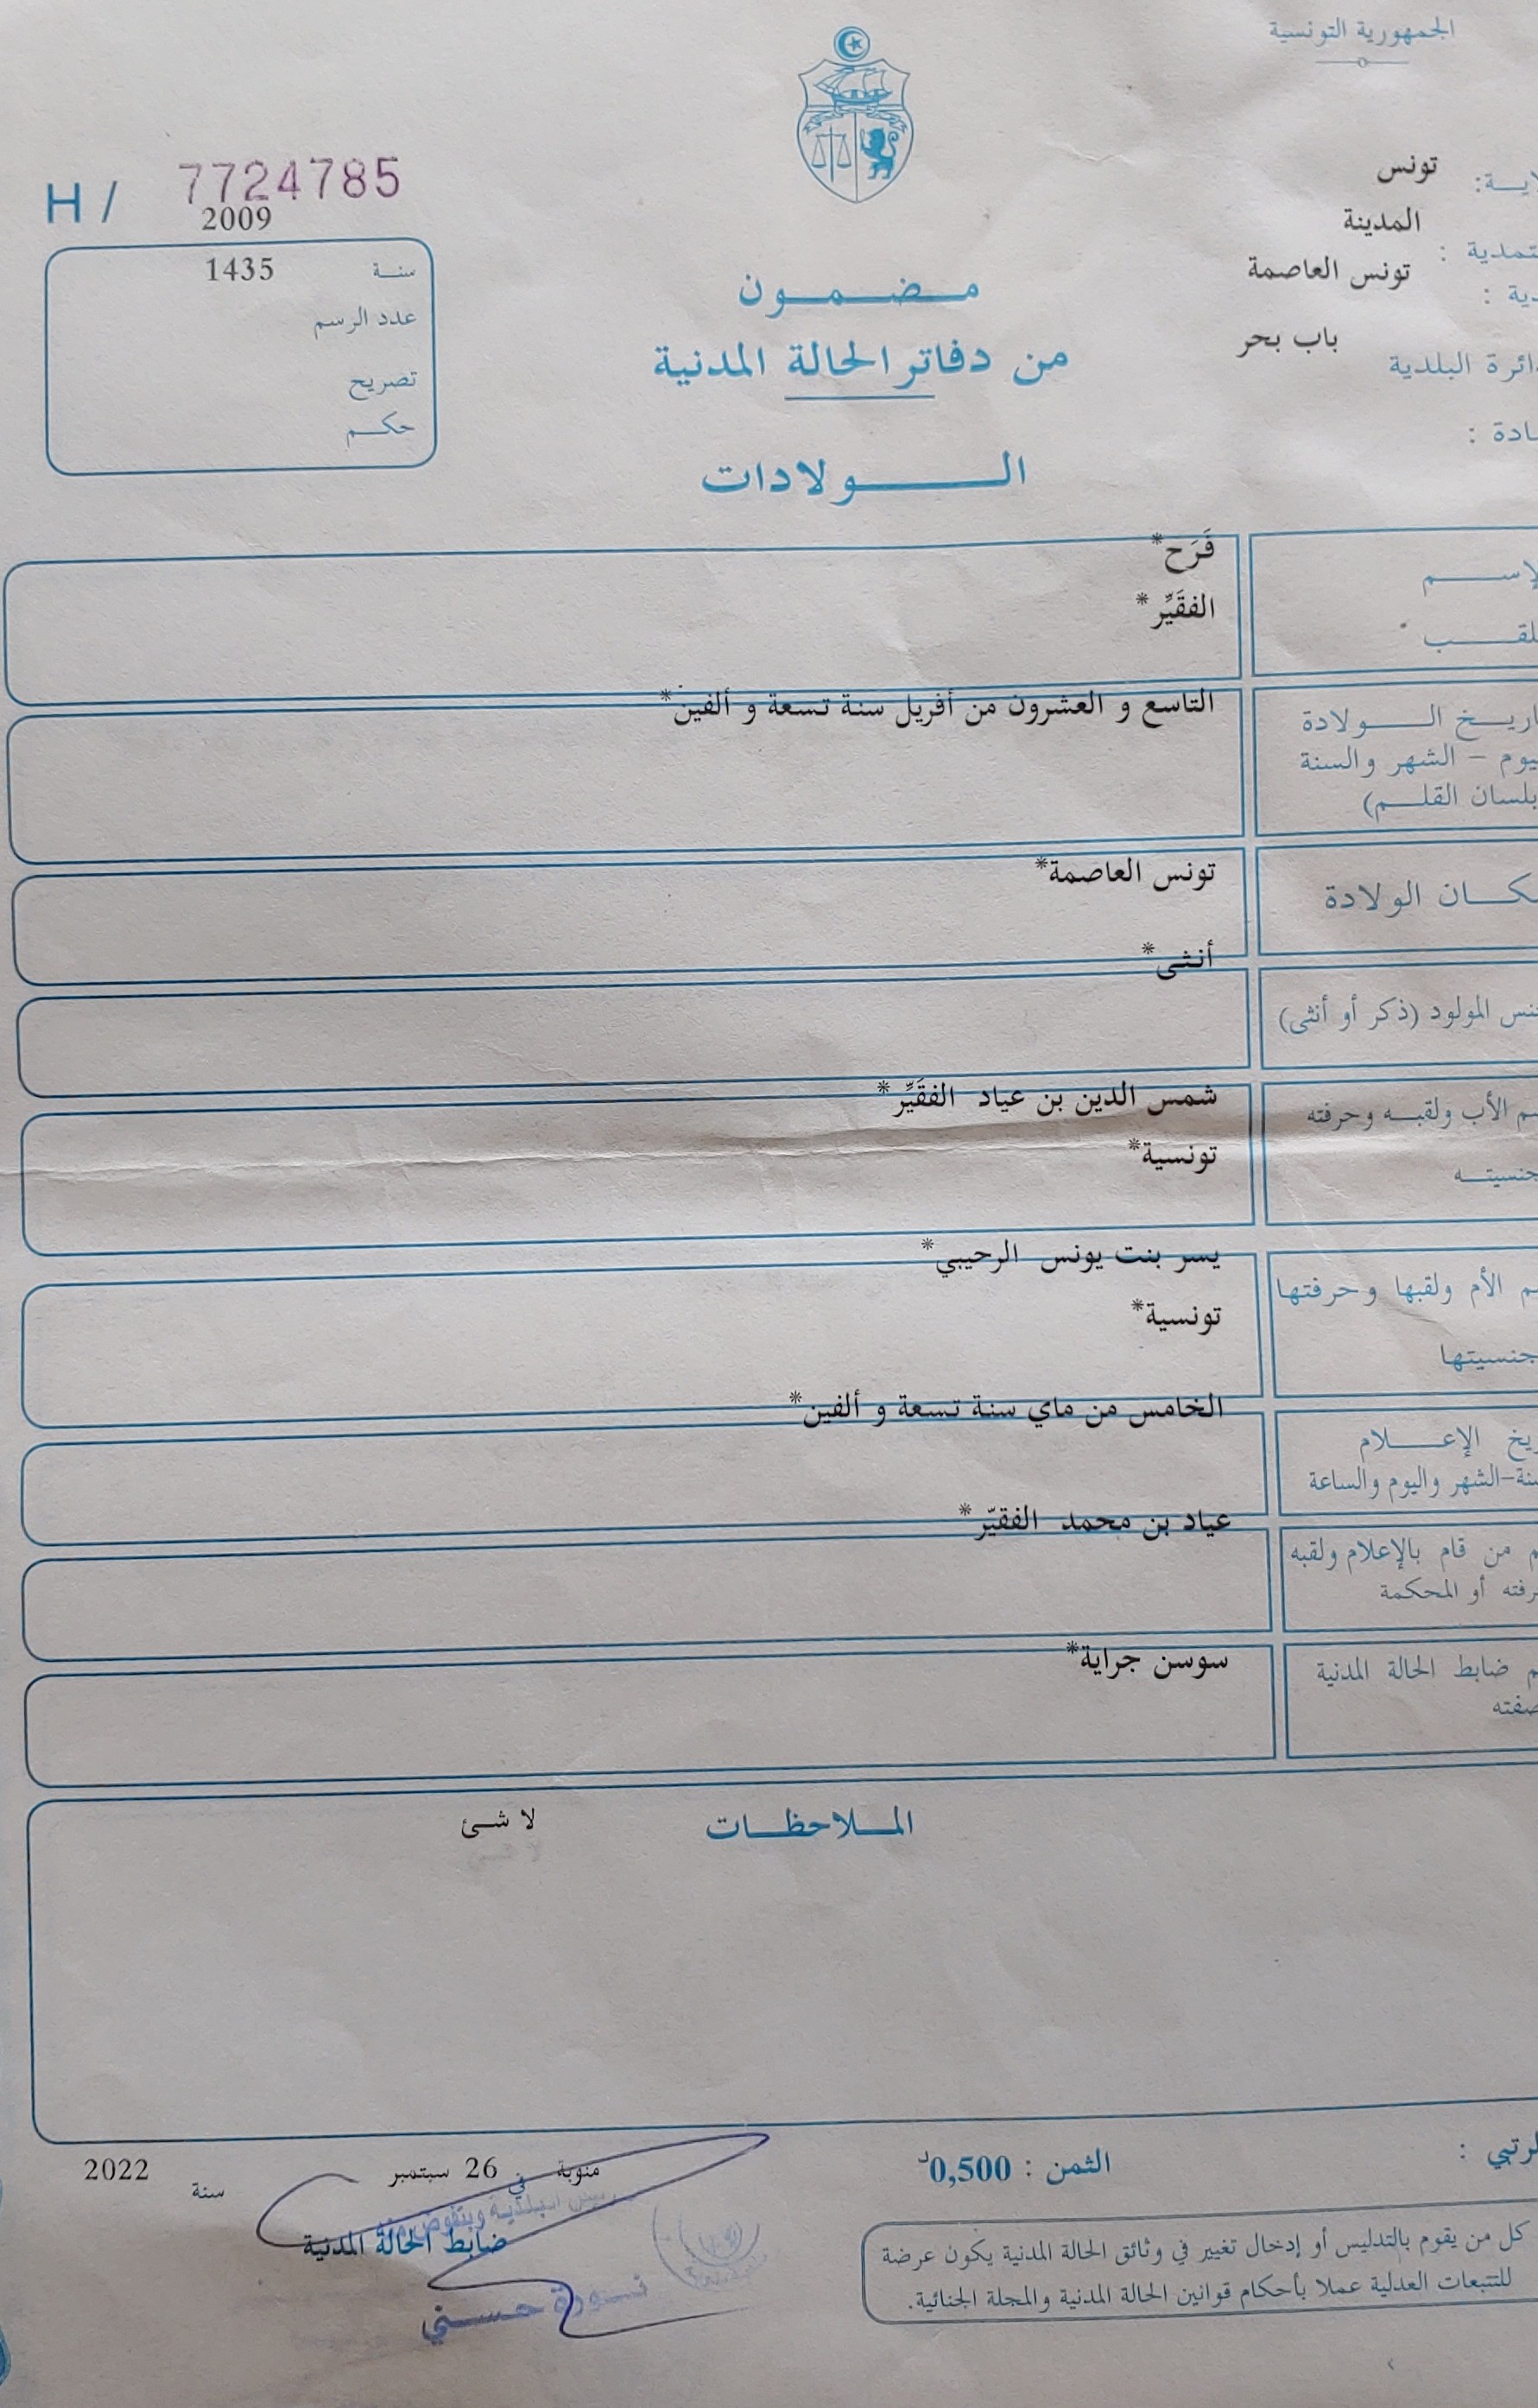 الجمهورية التونسية
تونس
المدينة
تونس العاصمة
باب بحر
الدائرة البلدية
H / 7724785
2009
سنة 1435
عدد الرسم
تصريح
حكم
مضمون
من دفاتر الحالة المدنية
الولادات
الإسم فَرَح*
اللقب الفقَيِّر*
تاريخ الولادة التاسع و العشرون من أفريل سنة تسعة و ألفين*
اليوم - الشهر والسنة
بلسان القلم)
مكان الولادة تونس العاصمة*
أنثى*
جنس المولود (ذكر أو أنثى)
إسم الأب ولقبه وحرفته شمس الدين بن عياد الفقَيِّر*
جنسيته تونسية*
إسم الأم ولقبها وحرفتها يسر بنت يونس الرحيبي*
جنسيتها تونسية*
تاريخ الإعلام الخامس من ماي سنة تسعة و ألفين*
السنة-الشهر واليوم والساعة
إسم من قام بالإعلام ولقبه عياد بن محمد الفقيّر*
حرفته أو المحكمة
إسم ضابط الحالة المدنية سوسن جراية*
صفته
الملاحظات لا شئ
الثمن : 0,500د
منوبة في 26 سبتمبر سنة 2022
ضابط الحالة المدنية
حسني
كل من يقوم بالتدليس أو إدخال تغيير في وثائق الحالة المدنية يكون عرضة
للتتبعات العدلية عملا بأحكام قوانين الحالة المدنية والمجلة الجنائية.